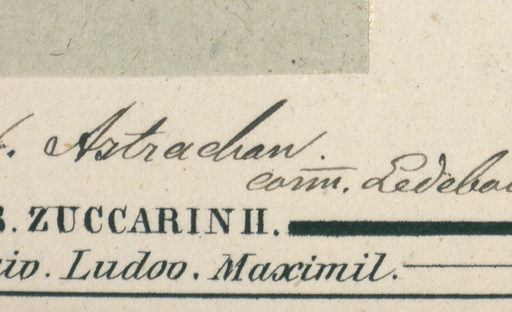 . Astrachan.
com̅m̅. Ledebou
B. ZUCCARINII.
uio. Ludoo. Maximil.